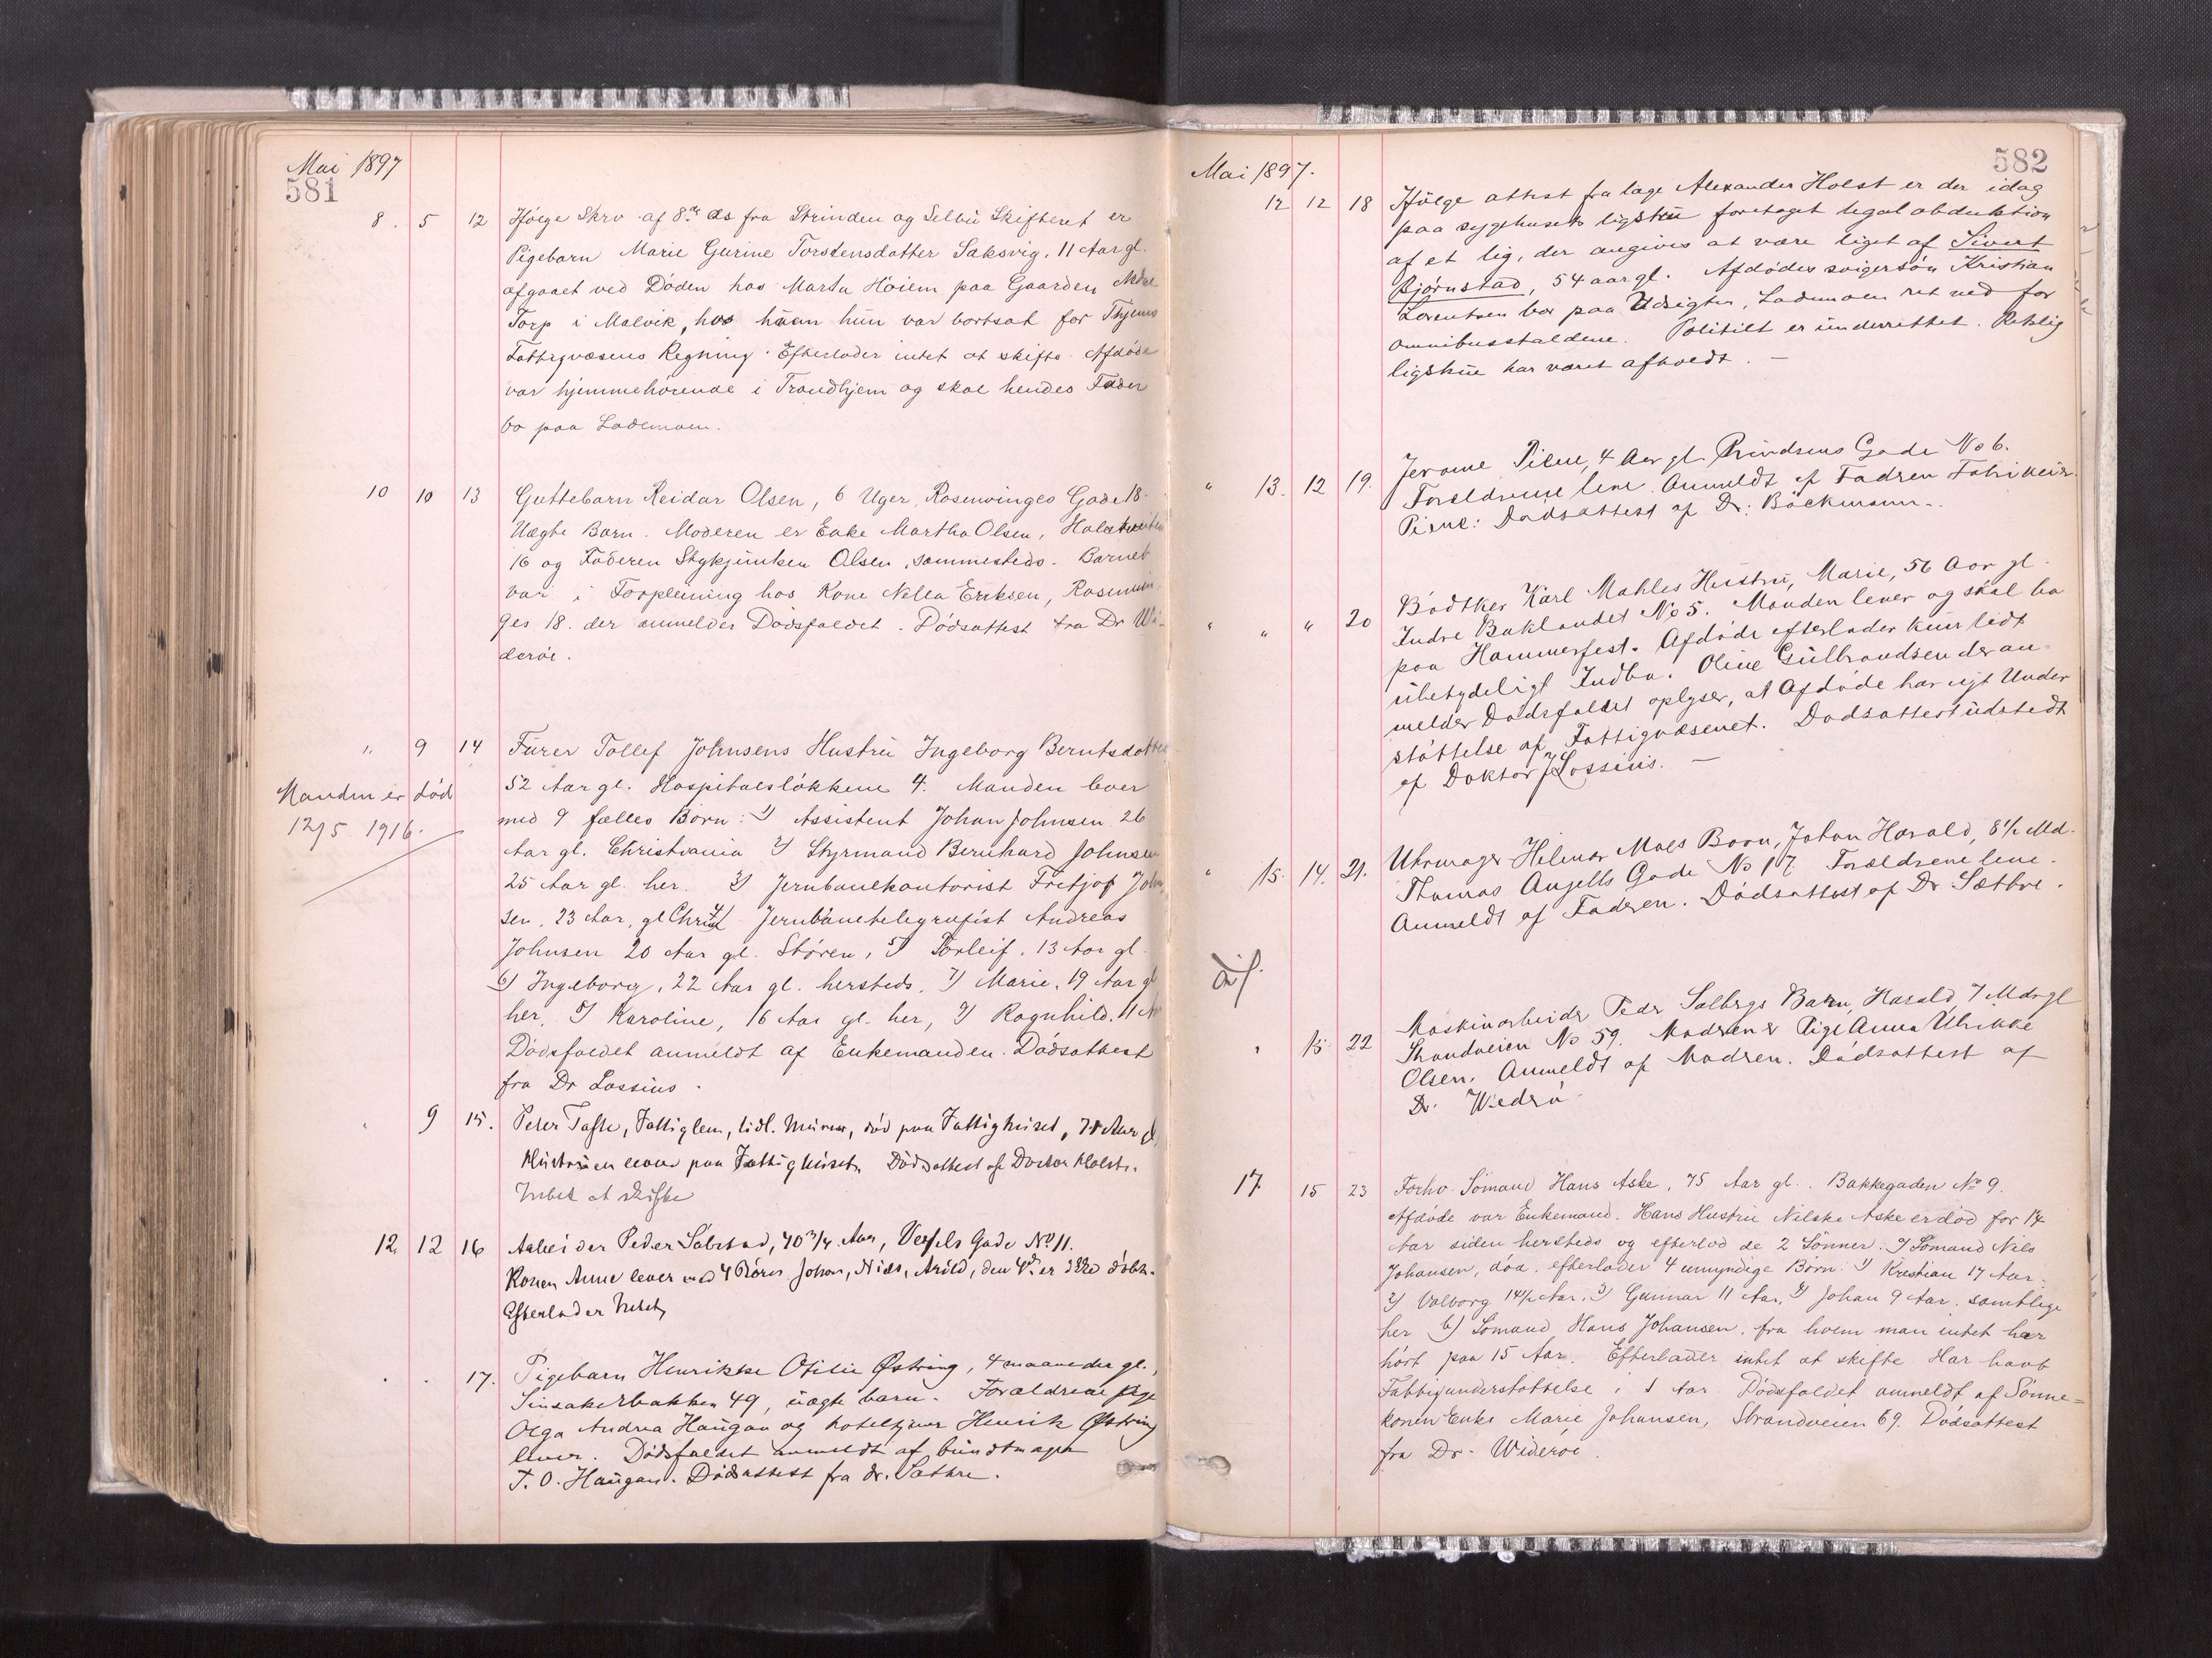 Mai 1897
581
8. 5 12 Ifølge Skrv. af 8de ds fra Strinden og Selbu Skifteret er
Pigebarn Marie Gurine Torstensdatter Saksvig, 11 Aar gl.
afgaaet ved Døden hos Martin Höiem paa Gaarden Nedre
Torp i Malvik, hos hvem hun var bortsat for Thjems
Fattigvæsens Regning. Efterlader intet at skifte. Afdøde
var hjemmehörende i Trondhjem og skal hendes Fader
bo paa Lademoen.
10 10 13 Guttebarn Reidar Olsen, 6 Uger, Rosenvinges Gade 18.
Uægte Barn. Moderen er Enke Martha Olsen,
16 og Faderen Olsen, sammesteds. Barnet
var i Forpleining hos Kone Nella Eriksen, Rosenvin-
ges 18. der anmelder Dödsfaldet. Dödsattest fra Dr Wi-
deröe.
" 9 14 Furer Tollef Johnsens Hustru Ingeborg Berntsdatter
52 Aar gl. Hospitalsløkkene 4. Manden lever
Manden er död
12/5 1916.
med 9 fælles Börn: 1) Assistent Johan Johnsen 26
Aar gl. Christiania 2) Styrmand Bernhard Johnsen
25 Aar gl. her. 3) Jernbanekontorist Fritjof John-
sen, 23 Aar, gl Chria 4) Jernbanetelegrafist Andreas
Johnsen 20 Aar gl. Støren, 5) Torleif, 13 Aar gl.
6) Ingeborg, 22 Aar gl. hersteds, 7) Marie, 19 Aar gl
her, 8) Karoline, 16 Aar gl. her, 9) Ragnhild. 11 Aar
Dödsfaldet anmeldt af Enkemanden. Dödsattest
fra Dr Lossius.
9 15. Peter Taffe, Fattiglem, tidl. Murer, död paa Fattighuset, Aar gl.
Hustruen lever paa Fattighuset. Dödsattest af Doctor Holst.
Intet at skifte
12. 12 16 Arbeider Peder Sæbstad, 40 3/4 Aar, Vessels Gade No 11.
Konen Anne lever med 4 Börn Johan, Nils, Arild, den 4de er ikke döbt.
Efterlader Intet,
" " 17. Pigebarn Henrikke Otilie Østring, 4 maaneder gl.,
Sinsakerbakken 49, uægte barn. Forældrene pige
Olga Andrea Haugan og hoteltjener Henrik Østring
lever. Dödsfaldet anmeldt af bundtmager
T. O. Haugan. Dödsattest fra dr. Sæthre.
582
Mai 1897.
12 12 18 Ifölge attest fra læge Alexander Holst er der idag
paa sygehusets ligstue foretaget legal obduktion
af et lig, der angives at være liget af Sivert
Bjørnstad, 54 aar gl. Afdödes svigersön Kristian
Lorentsen bor paa Udsigten, Lademoen ret ned for
omnibusstaldene. Politiet er underrettet. Retslig
ligskue har været afholdt. —
" 13. 12 19. Jerome Pirne, 4 Aar gl. Prindsens Gade No 6.
Forældrene leve. Anmeldt af Fadren Fabrikeier
Pirne: Dødsattest af Dr: Böckmann.
" " " 20 Bødtker Karl Mahles Hustru, Marie, 56 Aar gl.
Indre Baklandet No 5. Manden lever og skal bo
paa Hammerfest. Afdøde efterlader kun lidt
ubetydeligt Indbo. Oline Gulbrandsen der an-
melder Dødsfaldet oplyser, at Afdøde har nyt Under
støttelse af Fattigvæsenet. Dødsattest udstedt
af Doktor J Lossius. —
" 15. 14. 21. Uhrmager Hilmar Moes Barn, Johan Harald, 8 1/2 Md.
Thomas Angells Gade No 17. Forældrene leve.
Anmeldt af Fadren. Dödsattest af Dr Sæthre.
" 15 22 Maskinarbeider Peder Solbergs Barn, Harald, 7 Mdr gl
Strandveien No 59. Modren er Pige Anna Ulrikke
Olsen. Anmeldt af Modren. Dödsattest af
Dr. Widerö
17. 15 23 Forhv. Sömand Hans Aske, 75 Aar gl.. Bakkegaden No 9.
Afdöde var Enkemand. Hans Hustru Nilske Aske er död for 14
Aar siden hersteds og efterlod de 2 Sönner: a) Sömand Nils
Johansen, död, efterlader 4 umyndige Börn: 1) Kristian 17 Aar,
2) Valborg 14 1/2 Aar, 3) Gunnar 11 Aar, 4) Johan 9 Aar, samtlige
her b) Sömand Hans Johansen, fra hvem man intet har
hört paa 15 Aar. Efterlader intet at skifte. Har havt
Fattigunderstøttelse i 1 Aar. Dödsfaldet anmeldt af Sönne-
konen Enke Marie Johansen, Strandveien 69. Dödsattest
fra Dr. Wideröe.